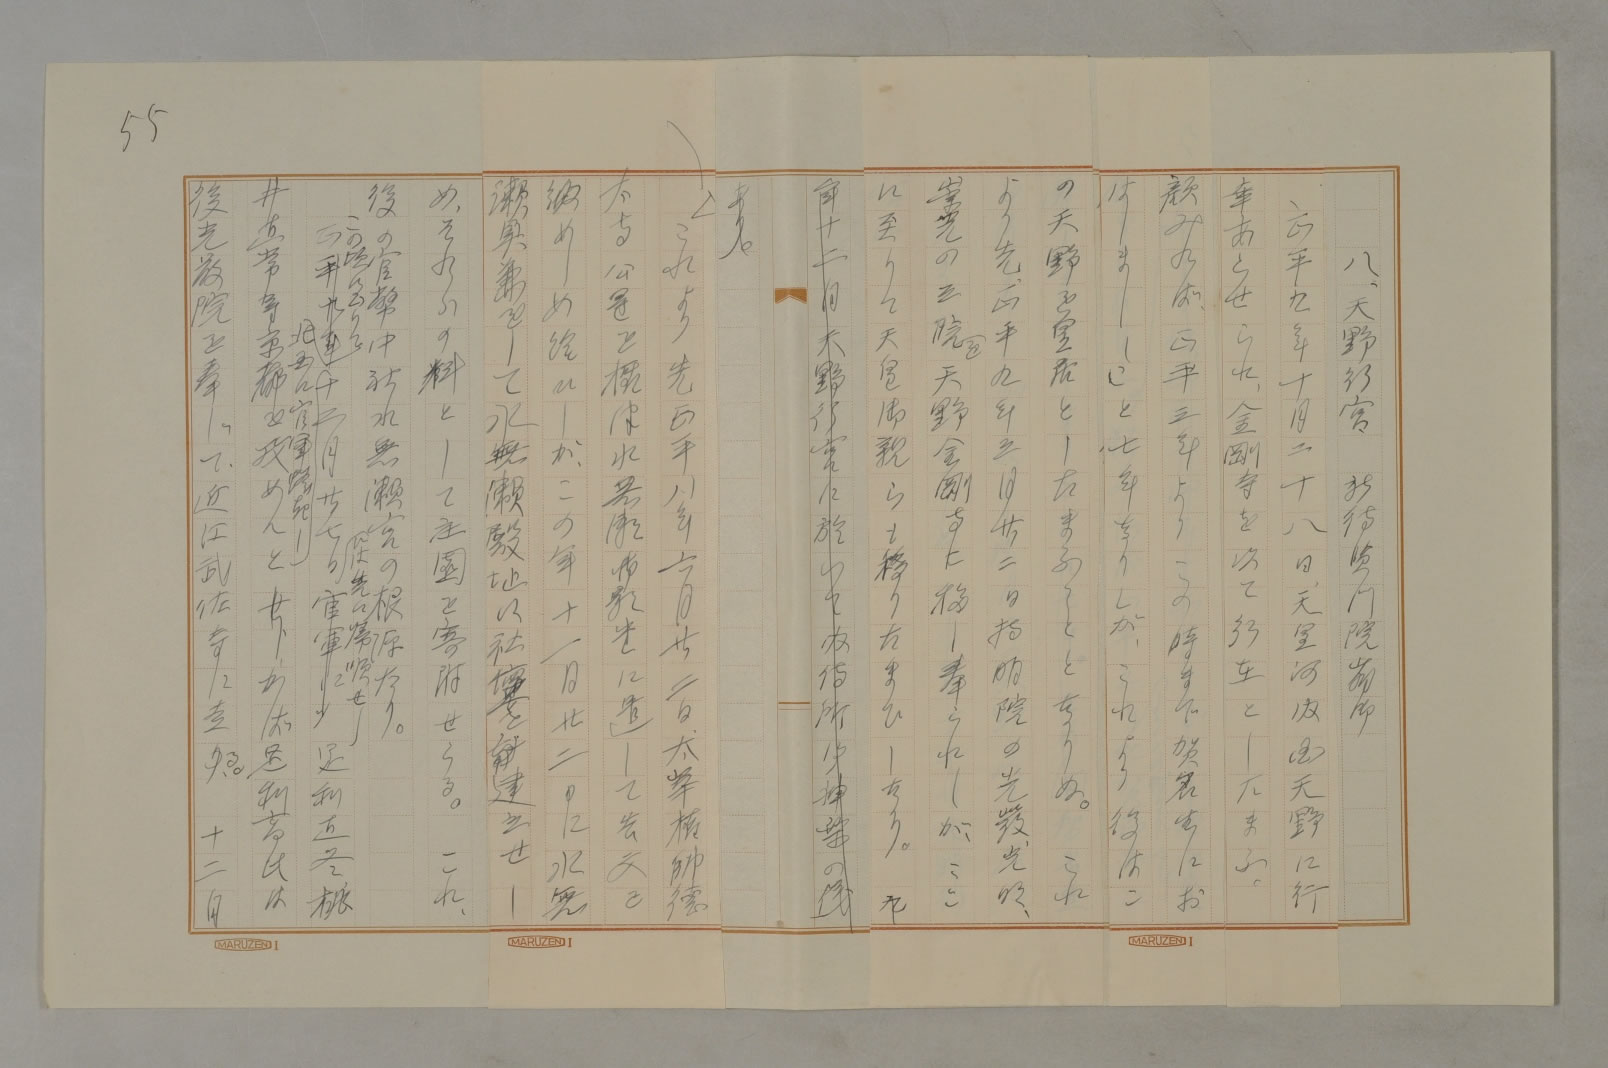 55
八、天野行宮 新待賢門院崩御
正平九年十月二十八日、天皇河内国天野に行
幸あらせられ、金剛寺を以て行在としたまふ。
顧みれば、正平三年よりこの時まで賀名生にお
はしましゝこと七年なりしが、これより後はこ
の天野を皇居としたまふことゝなりぬ。これ
より先、正平九年三月廿二日持明院の光厳、光明、
崇光の三院を天野金剛寺に移し奉られしが、こゝ
に至りて天皇御親らも移りたまひしなり。 九
年十二月天野行宮に於いて内侍所御神楽の儀
あり。
これより先正平八年六月廿二日、太宰権帥
大寺公冠を水無瀬御影堂に遣して告文を
納めしめ給ひしが、この年十一月廿二日に水無
瀬具兼をして水無瀬殿址に社壇を建立せし
め、それらの料として庄園を寄附せらる。 これ、
後の官幣中社水無瀬宮の根源なり。
この頃に至りて
正平九年十二月廿七日官軍に 足利直冬 桃
井直常等京都を攻めんと せしかば足利尊氏は
後光厳院を奉じて、近江武佐寺に走る。 十二月
MARUZEN I
MARUZEN I
MARUZEN I